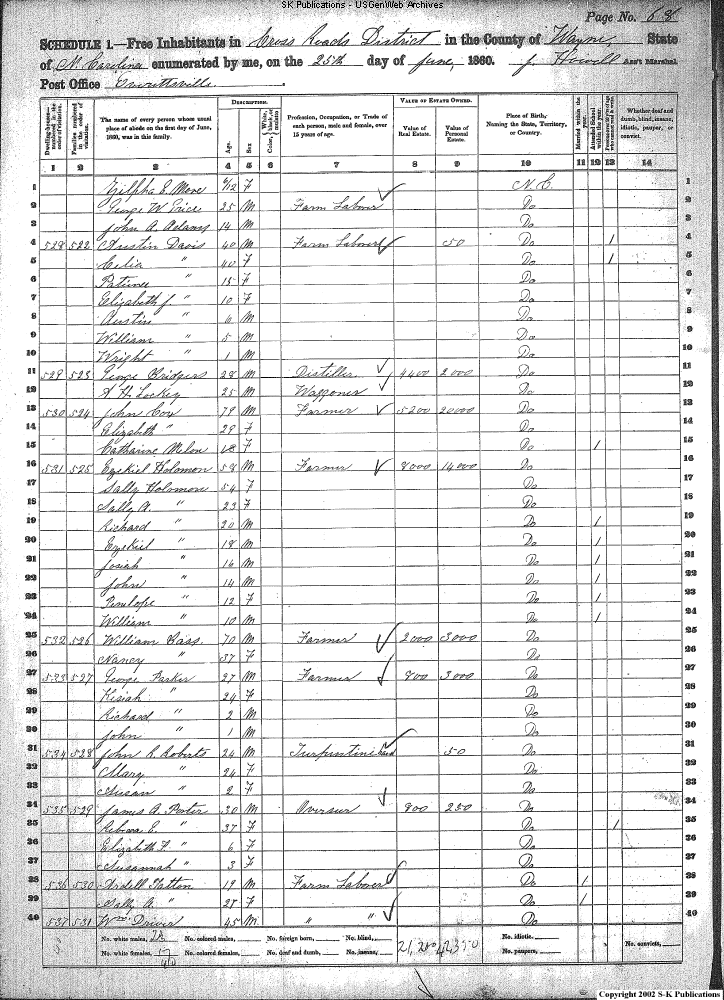 SK Publications - USGenWeb Archives
Page No. 68
SCHEDULE 1.—Free Inhabitants in Cross Roads District in the County of Wayne State
of N. Carolina enumerated by me, on the 25th day of June, 1860. J Howell Ass't Marshal
Post Office Everettsville
Dwelling-houses— numbered in the order of visitation.
Families numbered in the order of visitation.
The name of every person whose usual place of abode on the first day of June, 1860, was in this family.
DESCRIPTION.
Age.
Sex.
Color, White, black, or mulatto.
Profession, Occupation, or Trade of each person, male and female, over 15 years of age.
VALUE OF ESTATE OWNED.
Value of Real Estate.
Value of Personal Estate.
Place of Birth, Naming the State, Territory, or Country.
Married within the year.
Attended School within the year.
Whether deaf and dumb, blind, insane, idiotic, pauper, or convict.
1 2 3 4 5 6 7 8 9 10 11 12 13 14
1 Zilpha E. 9/12 F N.C. 1
2 George W Price 25 M Farm Labour Do 2
3 John A. Adams 14 M Do 3
4 528 522 Austin Davis 40 M Farm Labourer 50 Do 1 4
5 Celia " 40 F Do 1 5
6 " 15 F Do 6
7 Elizabeth J. " 10 F Do 7
8 Austin " 6 M Do 8
9 William " 5 M Do 9
10 Wright " 1 M Do 10
11 529 523 George Bridgers 28 M Distiller 4400 2000 Do 11
12 25 M Waggoner Do 12
13 530 524 John Cox 79 M Farmer 5200 20000 Do 13
14 Elizabeth " 29 F Do 14
15 Catharine F Do 1 15
16 531 525 Ezekiel Holomon 58 M Farmer 8000 14000 Do 16
17 Sally Holomone 54 F Do 17
18 Sally A. " 23 F Do 18
19 Richard " 20 M Do 1 19
20 Ezekiel " 18 M Do 1 20
21 Josiah " 16 M Do 1 21
22 John " 14 M Do 1 22
23 Penelope " 12 F Do 1 23
24 William " 10 M Do 1 24
25 532 526 William Bass 70 M Farmer 2000 3000 Do 25
26 Nancy " 37 F Do 26
27 533 527 George Parker 27 M Farmer 800 3000 Do 27
28 Kisiah " 24 F Do 28
29 Richard " 2 M Do 29
30 John " 1 M Do 30
31 534 528 John R. Roberts 24 M Turpentine hand 50 Do 31
32 Mary " 24 F Do 32
33 Susan " 2 F Do 33
34 535 529 James A. Porter 30 M Overseer 800 250 Do 34
35 " 37 F Do 1 35
36 Elizabeth F. " 6 F Do 36
37 Susannah " 3 F Do 37
38 536 530 Ardell Tatton 19 M Farm Laborer Do 1 38
39 Sally A. " 28 F Do 1 39
40 537 531 Wm Driver 45 M " " Do 40
No. white males, No. colored males, No. foreign born, No. blind, 21,200 42350 No. idiotic, No. convicts,
No. white females, No. colored females, No. deaf and dumb, No. insane, No. paupers,
Copyright 2002 S-K Publications